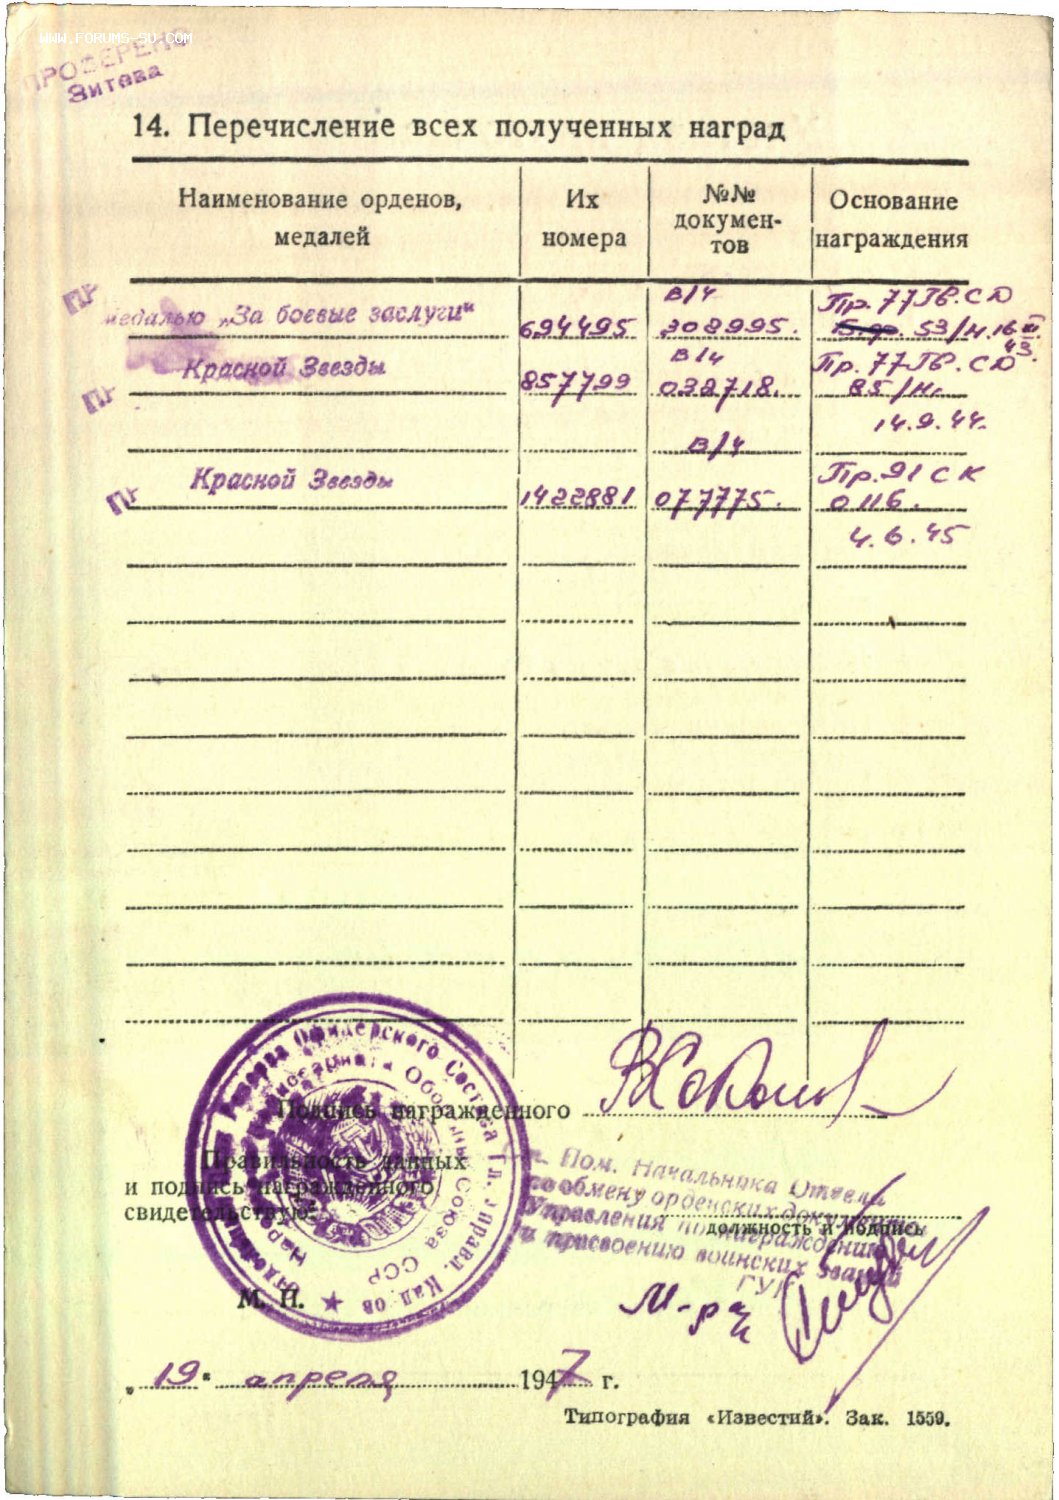 WWW.FORUMS-SU.COM
ПРОВЕРЕНО
Зитева
14. Перечисление всех полученных наград
Наименование орденов, медалей
Их номера
№№ докумен-тов
Основание награждения
Пр
медалью „За боевые заслуги“
694495
В/ч
308995.
Пр. 77 Гв. С Д
53/н. 16 43.
Пр
Красной Звезды
857799
В/ч
032718.
Пр. 77 Гв. С Д
85/н.
14.9.44.
Пр
Красной Звезды
1422881
В/ч
077775.
Пр. 91 С К
0116.
4.6.45
Резерва Офицерского Состава Гл. Управл. Кадров
Комиссариата Обороны Союза ССР
Подпись награжденного
ВСоколов
Правильность данных
и подпись награжденного
свидетельствую:
Пом. Начальника Отдела
по обмену орденских документов
Управления по награждению
и присвоению воинских званий
ГУК
должность и подпись
М. П.
М-р
„19“ апреля 1947 г.
Типография «Известий». Зак. 1559.